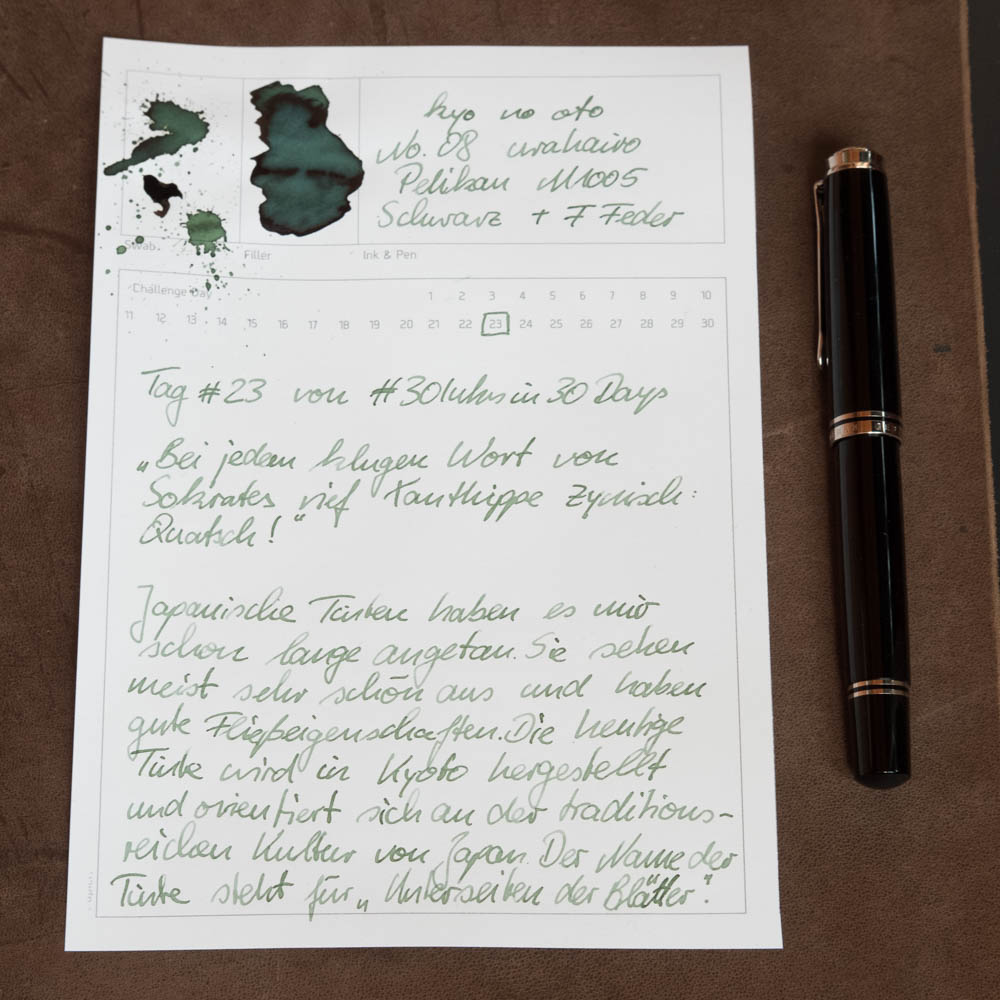 kyo no oto
No. 08 urahairo
Pelikan M1005
Schwarz + F Feder
Swab
Filler
Ink & Pen
Challenge Day
1 2 3 4 5 6 7 8 9 10
11 12 13 14 15 16 17 18 19 20 21 22 23 24 25 26 27 28 29 30
Tag #23 von #30Inksin30Days
„Bei jedem klugen Wort von
Sokrates rief Xanthippe zynisch:
Quatsch!“
Japanische Tinten haben es mir
schon lange angetan. Sie sehen
meist sehr schön aus und haben
gute Fließeigenschaften. Die heutige
Tinte wird in Kyoto hergestellt
und orientiert sich an der traditions-
reichen Kultur von Japan. Der Name der
Tinte steht für „Unterseiten der Blätter“.